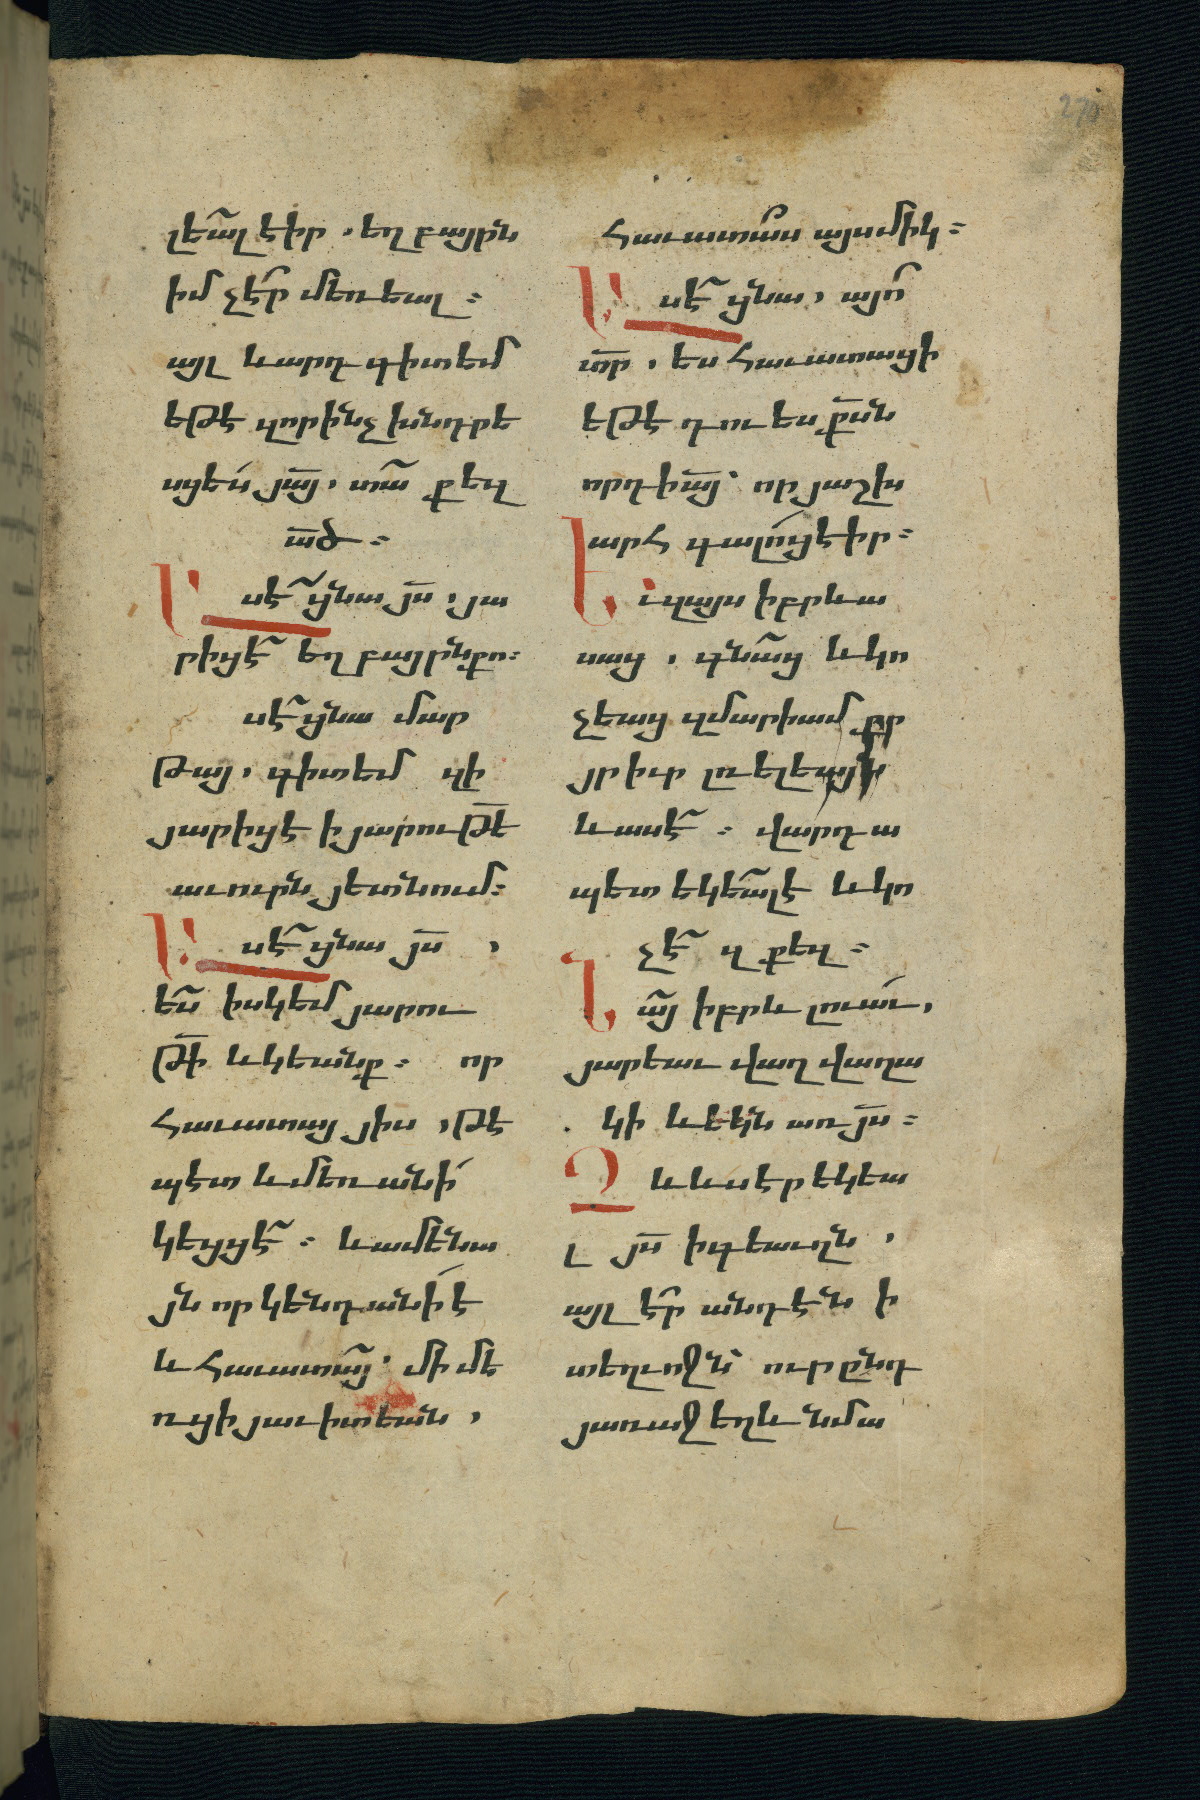 լեա՛լ էիր, եղբայրն
իմ չէ՛ր մեռեալ։
այլ և արդ գիտեմ
եթէ զորինչ խնդրե
սցես յա՟յ, տա՛ քեզ
ա՟ծ։
Ասէ՛ ցնա յ՟ս, յա
րիցէ՛ եղբայրն քո։
ասէ՛ ցնա մար
թայ, գիտեմ զի
յարիցէ ի յարութե՟
աւուրն յետնում։
Ասէ՛ ցնա յ՟ս,
ե՛ս իսկ եմ յարու
թի՟ և կեանք։ որ
հաւատայ յիս, թէ
պէտ և մեռանի՛
կեցցէ՛։ և ամենա
յն որ կենդանի՛ է
և հաւատա՛յ՝ մի մե
ռցի յաւիտեան,
հաւատա՞ս այսմիկ։
Ասէ՛ ցնա, այո՛
տ՟ր, ես հաւատացի
եթէ դու ես ք՟սն
որդի ա՟յ՝ որ յաշխ
արհ գալո՛ց էիր։
Եւ զայս իբրև ա
սաց, գնա՛ց և կո
չեաց զմարիամ
իւր լռելեայն
և ասէ՛։ վարդա
պետ եկեա՛լ է և կո
չէ՛ զքեզ։
Նա՛յ իբրև լուաւ,
յարեաւ վաղվաղա
կի և եկն առ յ՟ս։
Չև ևս էր եկեա
լ յ՟ս ի գեաւղն,
այլ է՛ր անդէն ի
տեղւոջն՝ ուր ընդ
յառաջ եղև նմա
270